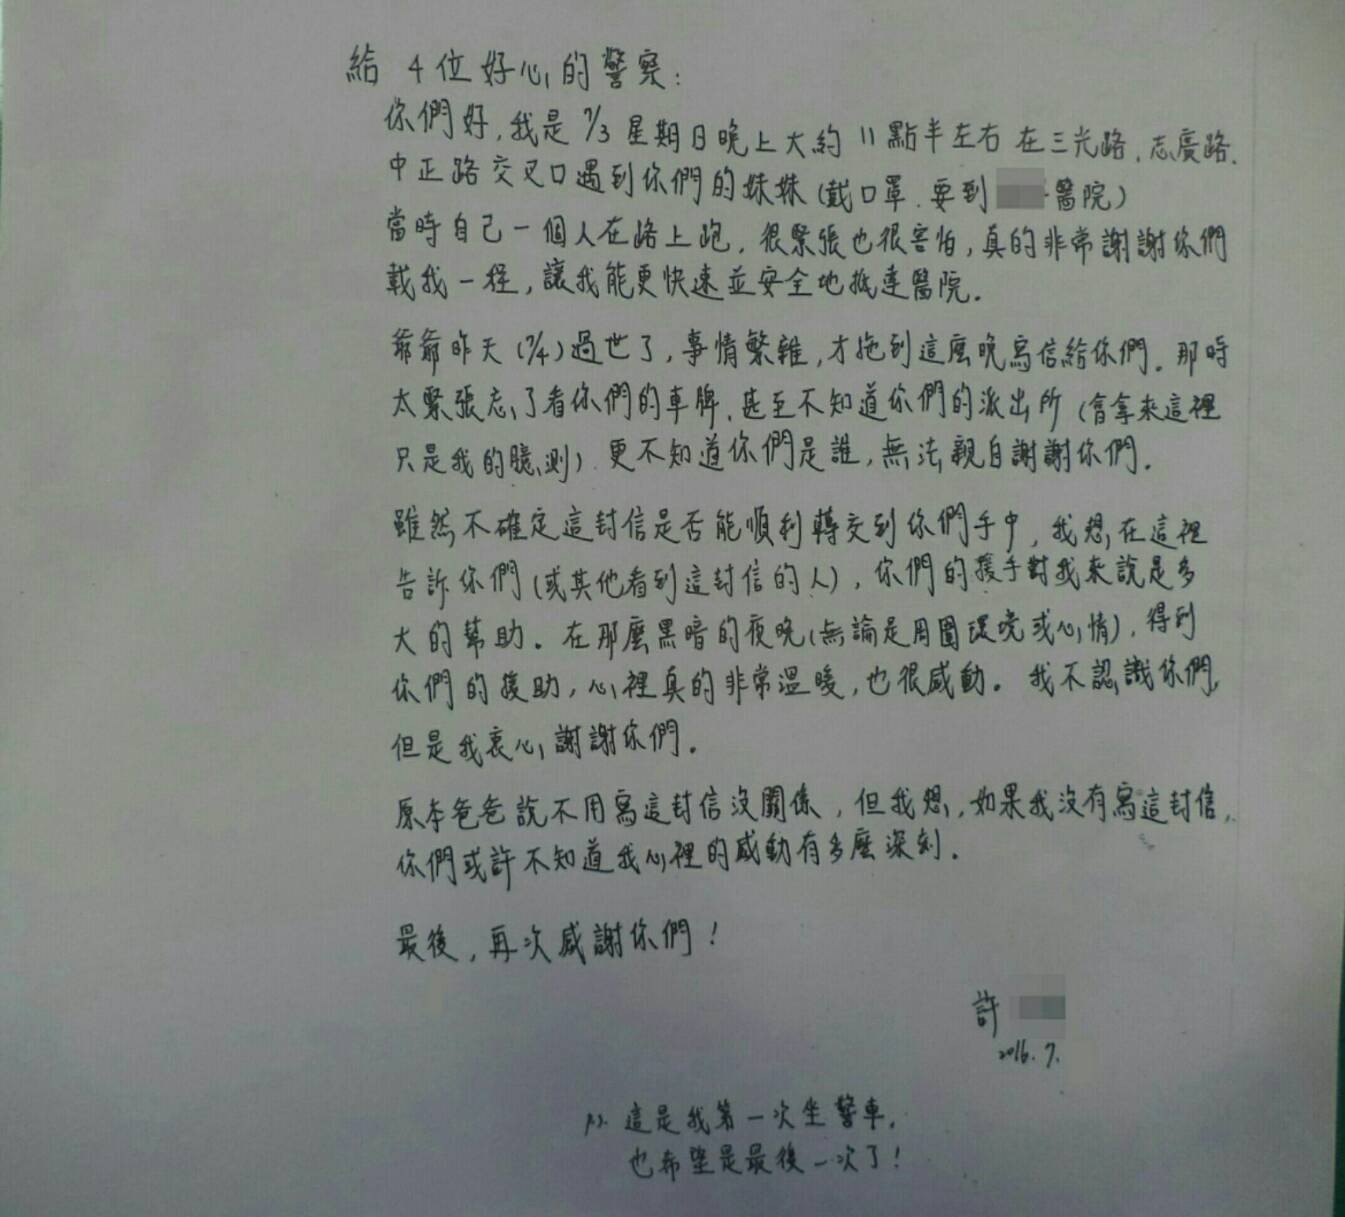 給 4位好心的警察:
你們好,我是 7/3 星期日晚上大約 11點半左右 在三光路、志廣路、
中正路交叉口遇到你們的妹妹(戴口罩、要到 醫院)
當時自己一個人在路上跑,很緊張也很害怕,真的非常謝謝你們
載我一程,讓我能更快速並安全地抵達醫院。
爺爺昨天(7/4)過世了,事情繁雜,才拖到這麼晚寫信給你們。那時
太緊張忘了看你們的車牌,甚至不知道你們的派出所(會拿來這裡
只是我的臆測),更不知道你們是誰,無法親自謝謝你們。
雖然不確定這封信是否能順利轉交到你們手中,我想在這裡
告訴你們(或其他看到這封信的人),你們的援手對我來說是多
大的幫助。在那麼黑暗的夜晚(無論是周圍環境或心情),得到
你們的援助,心裡真的非常溫暖,也很感動。我不認識你們,
但是我衷心謝謝你們。
原本爸爸說不用寫這封信沒關係,但我想,如果我沒有寫這封信,
你們或許不知道我心裡的感動有多麼深刻。
最後,再次感謝你們!
許
2016.7.
P.S. 這是我第一次坐警車,
也希望是最後一次了!